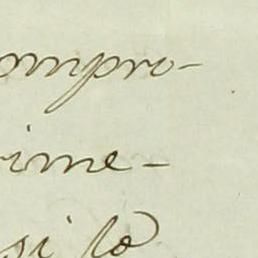 ompro-
ime-
si to